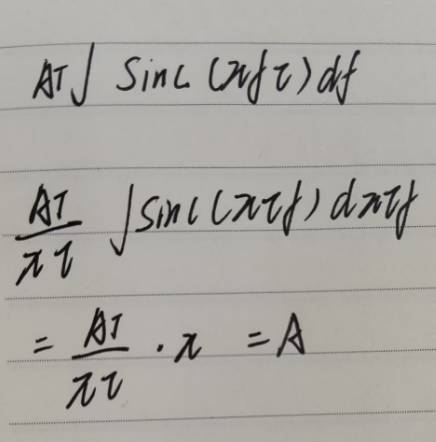 Aτ∫ Sinc (πfτ) df
Aτ/πτ ∫ Sinc (πτf) dπτf
= Aτ/πτ · π = A